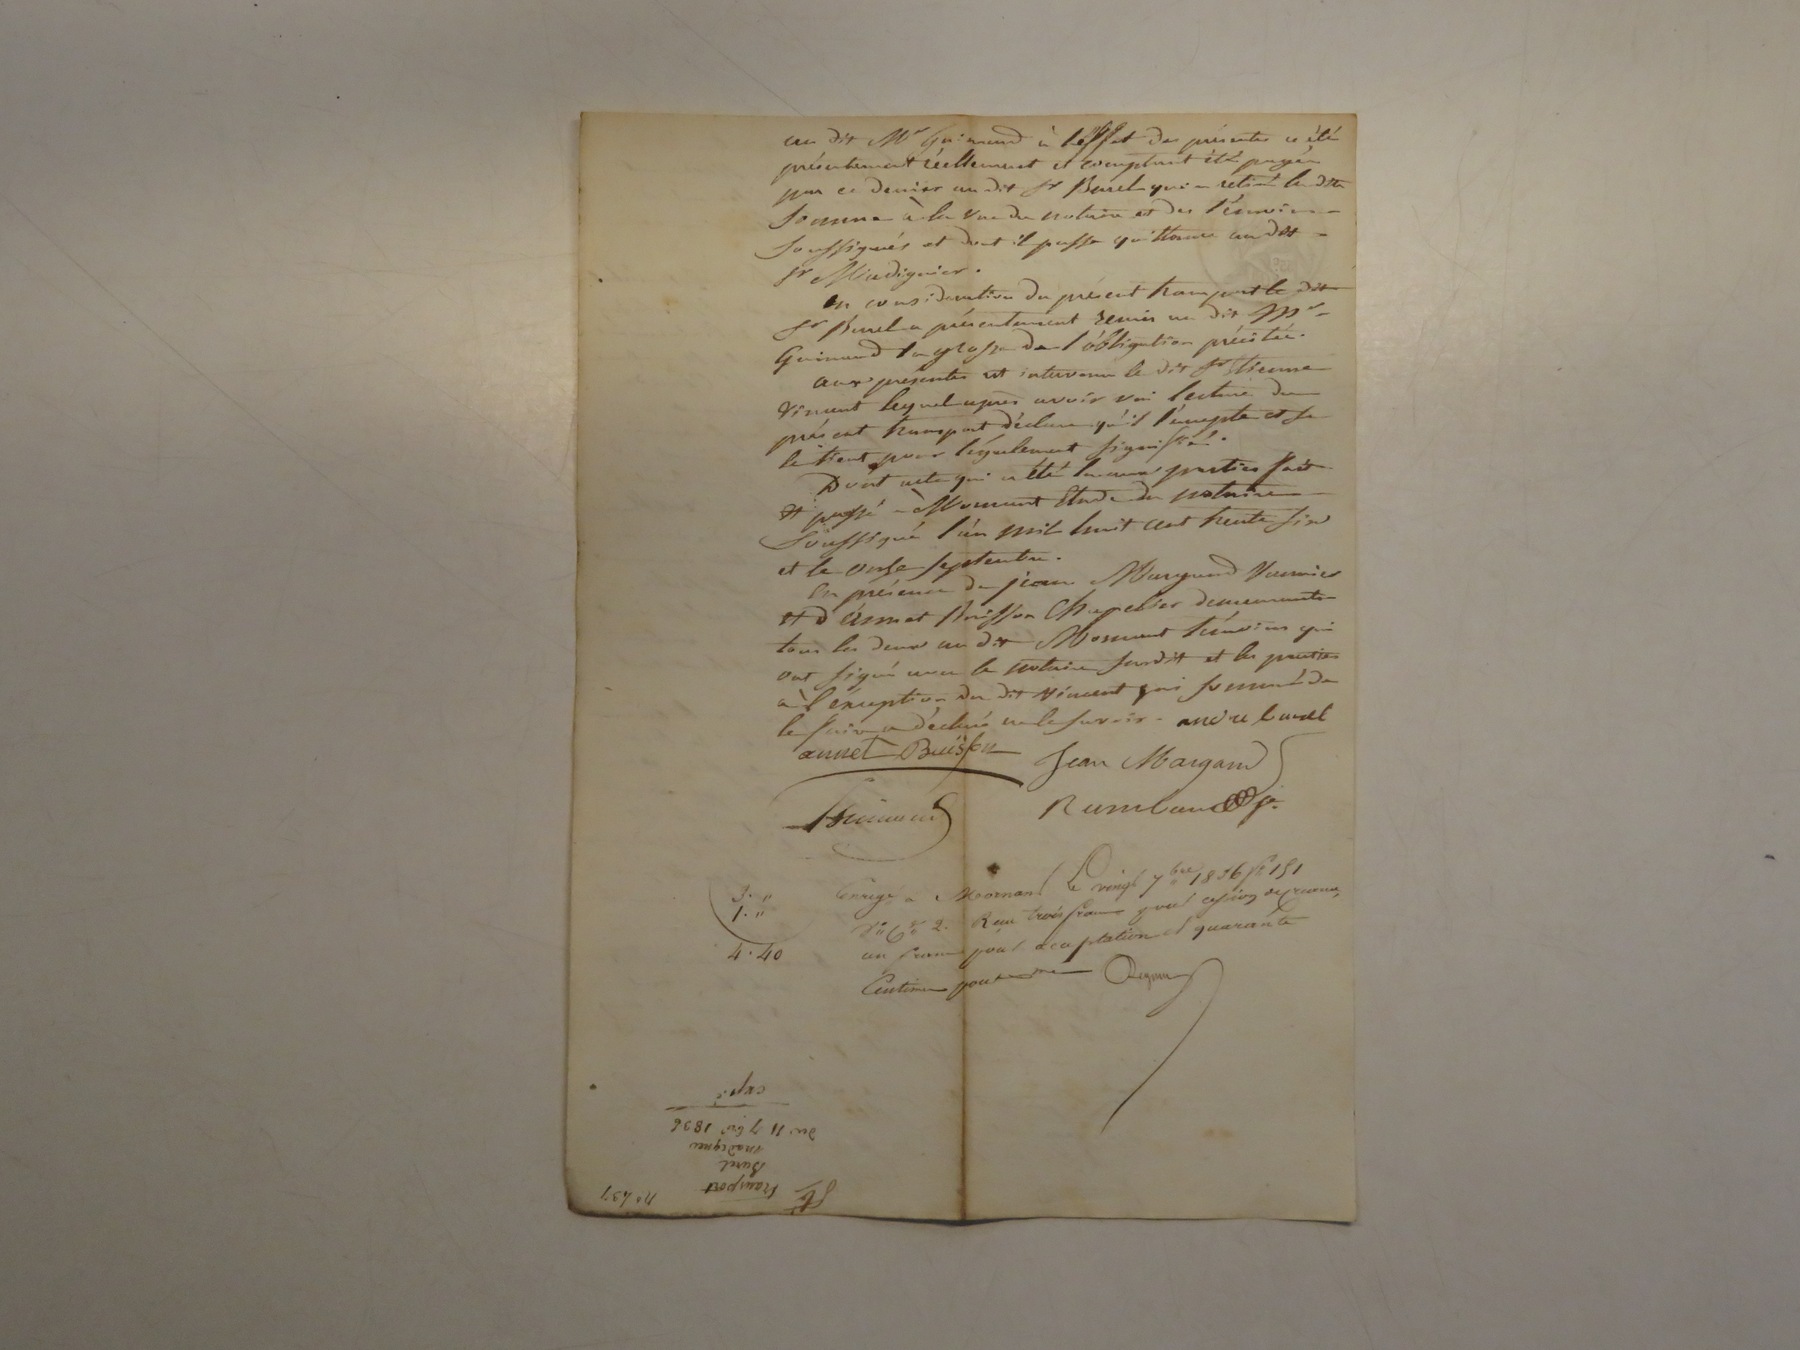 au dit Mr Guimand à l'effet des présentes a été
présentement réellement et comptant été payée
par ce dernier au dit Sr Burel qui a retiré la dte
Somme à la vue du notaire et des témoins
Soussignés et dont il passe quittance au dit
Sr Madignier.
En consideration du présent transport le dit
Sr Burel a présentement remis au dit Mr
Guimand la grosse de l'obligation précitée.
aux présentes est intervenu le dit Sr Etienne
Vincent lequel après avoir oui lecture du
présent transport déclare qu'il l'accepte et se
le tient pour légalement signifié.
Dont acte qui a été lu aux parties fait
et passé à Mornant Etude du notaire
Soussigné l'an mil huit cent trente six
et le onze septembre.
En présence de jean Margand
et d'Annet Buisson Chapelier demeurants
tous les deux au dit Mornant témoins qui
ont signé avec le notaire susdit et les parties
à l'exception du dit Vincent qui sommé de
le faire a déclaré ne le savoir - andre burel
annet Buisson Jean Margand
Guimand
Rambaud jne
Enregé a Mornant Le vingt 7bre 1836 fo 151
Vo Ce 2. Reçu trois francs pour cession de créance,
un franc pour acceptation et quarante
Centimes pour
3. "
1. "
4. 40
No 437
Transport
Burel
madignier
du 11 7bre 1836
expé